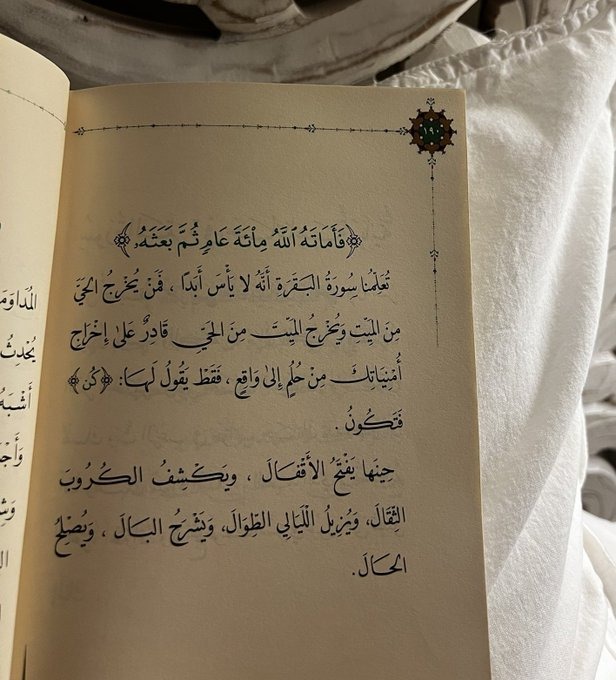 ١٩
﴿فَأَمَاتَهُ ٱللَّهُ مِاْئَةَ عَامٍ ثُمَّ بَعَثَهُۥ﴾
تُعَلِّمُنا سُورَةُ البَقَرَةِ أَنَّهُ لا يَأْسَ أَبَدًا ، فَمَنْ يُخْرِجُ الحَيَّ
مِنَ المَيِّتِ وَيُخْرِجُ المَيِّتَ مِنَ الحَيِّ قَادِرٌ عَلَىٰ إِخْرَاجِ
أُمْنِيَاتِكَ مِنْ حُلُمٍ إِلىٰ وَاقِعٍ ، فَقَطْ يَقُولُ لَهَا: ﴿كُن﴾
فَتَكُونُ .
حِينَها يَفْتَحُ الأَقْفَالَ ، وَيَكْشِفُ الكُرُوبَ
الثِّقَالَ، وَيُزِيلُ اللَّيَالِي الطِّوَالَ، وَيَشْرَحُ البَالَ ، وَيُصْلِحُ
الحَالَ.
المُدَاوَمَ
يُحْدِثُ
أَشْبَهُ